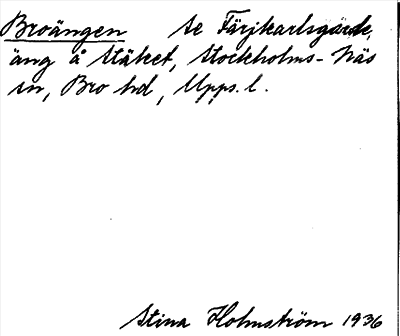 Broängen se Färjkarlsgärde,
äng å Stäket, Stockholms-Näs
sn, Bro hd, Upps. l.
Stina Holmström 1936